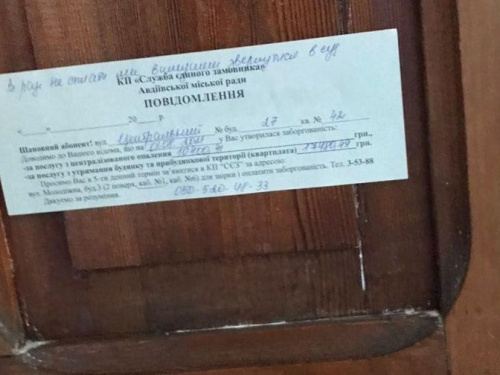 В разі не сплати ми вимушені звернутися в суд
КП «Служба єдиного замовника»
Авдіївської міської ради
ПОВІДОМЛЕННЯ
«____»____________20____р.
Шановний абонент! вул. № буд. 27 кв. № 42
Доводимо до Вашого відома, що на у Вас утворилася заборгованість:
-за послугу з централізованого опалення грн.,
-за послугу з утримання будинку та прибудинкової території (квартплата) грн.
Просимо Вас в 5-си денний термін зв'язатися в КП "ССЗ" за адресою:
вул. Молодіжна, буд.3 (2 поверх, каб. №1, каб. №6) для звірки і оплатити заборгованість. Тел. 3-53-88
Дякуємо за розуміння.